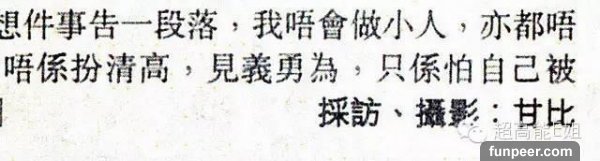 想件事告一段落，我唔會做小人，亦都唔
唔係扮清高，見義勇為，只係怕自己被
採訪、攝影：甘比
超高能E姐
funpeer.com